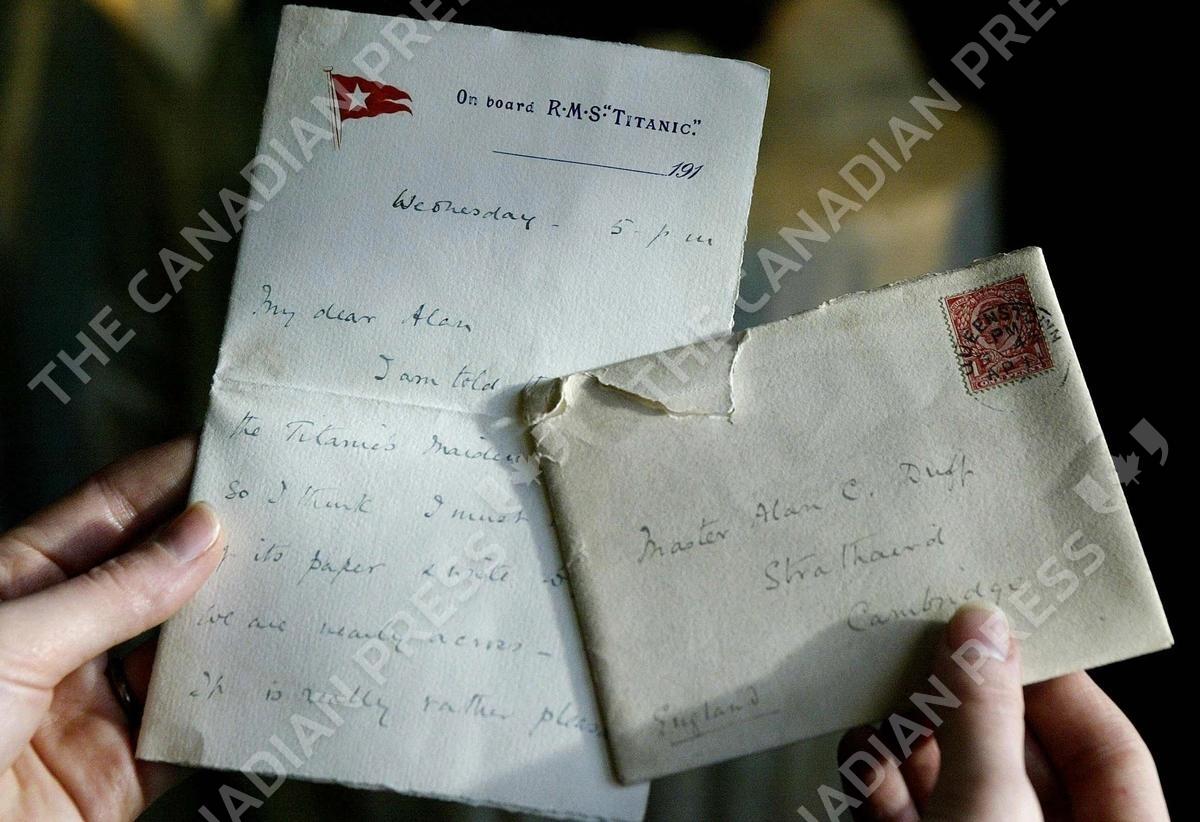 On board R.M.S. "TITANIC."
191
Wednesday - 5 - p m
My dear Alan
I am told
the Titanic's Maiden
So I think I must
its paper & write
We are nearly across -
It is really rather pleas
QUEENST
PM
AP 11
Master Alan C. Duff
Strathaird
Cambridge
England
THE CANADIAN PRESS
THE CANADIAN PRESS
THE CANADIAN PRESS
CANADIAN PRESS
CANADIAN PRESS